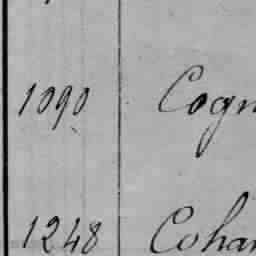 1090 Cogn
1248 Cohan